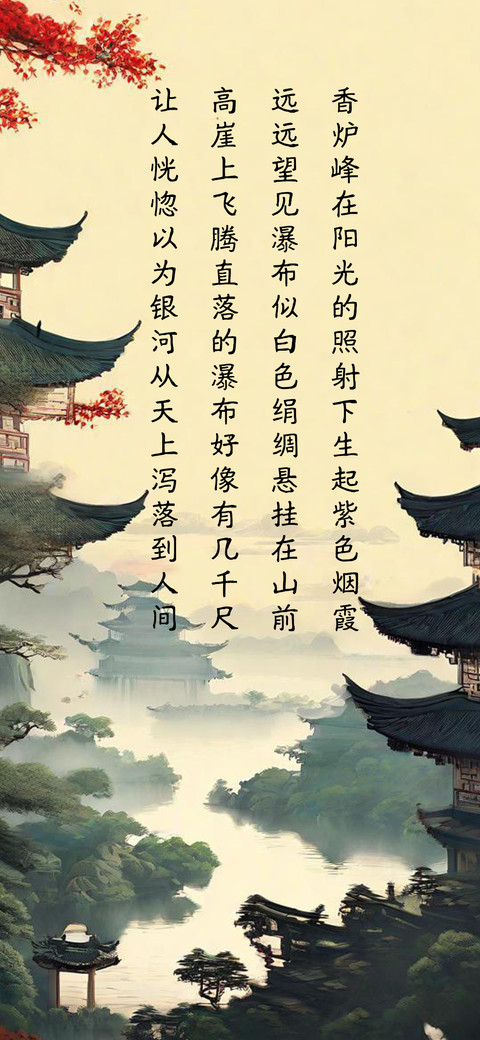 香炉峰在阳光的照射下生起紫色烟霞
远远望见瀑布似白色绢绸悬挂在山前
高崖上飞腾直落的瀑布好像有几千尺
让人恍惚以为银河从天上泻落到人间